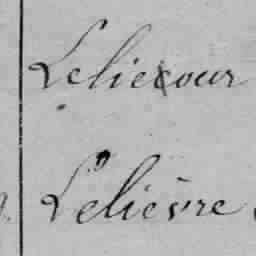 Leliexour
Lelièvre